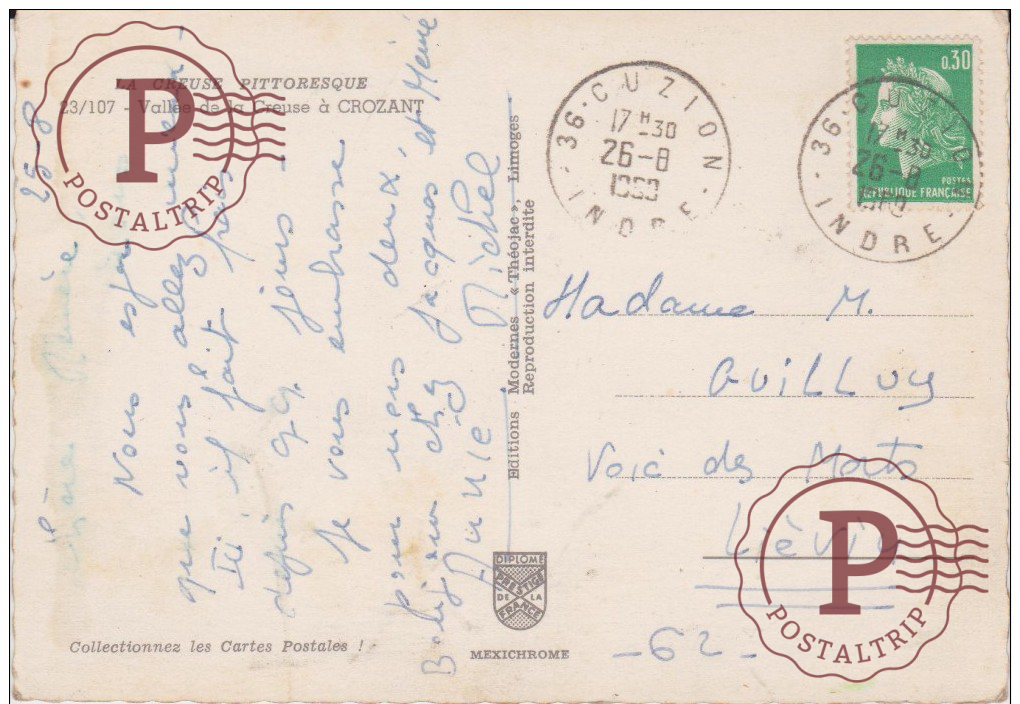 LA CREUSE PITTORESQUE
23/107 - Vallée de la Creuse à CROZANT
25-8
Nous
que vous allez
Ici il fait
depuis qq. jours
Je vous embrasse
Pour nous deux
Bonjour chez Jacques et Mémé
Annie Michel
Editions Modernes « Théojac », Limoges
Reproduction interdite
36 · CUZION · INDRE
17 H -30
26-8
36 · CUZION · INDRE
17 H 30
26-8
0,30
POSTES
REPUBLIQUE FRANÇAISE
Madame M.
GUILLUY
Voie des Morts
Liévin
- 62 -
DIPLOME
PRESTIGE
DE LA
FRANCE
MEXICHROME
Collectionnez les Cartes Postales !
P
POSTALTRIP
P
POSTALTRIP